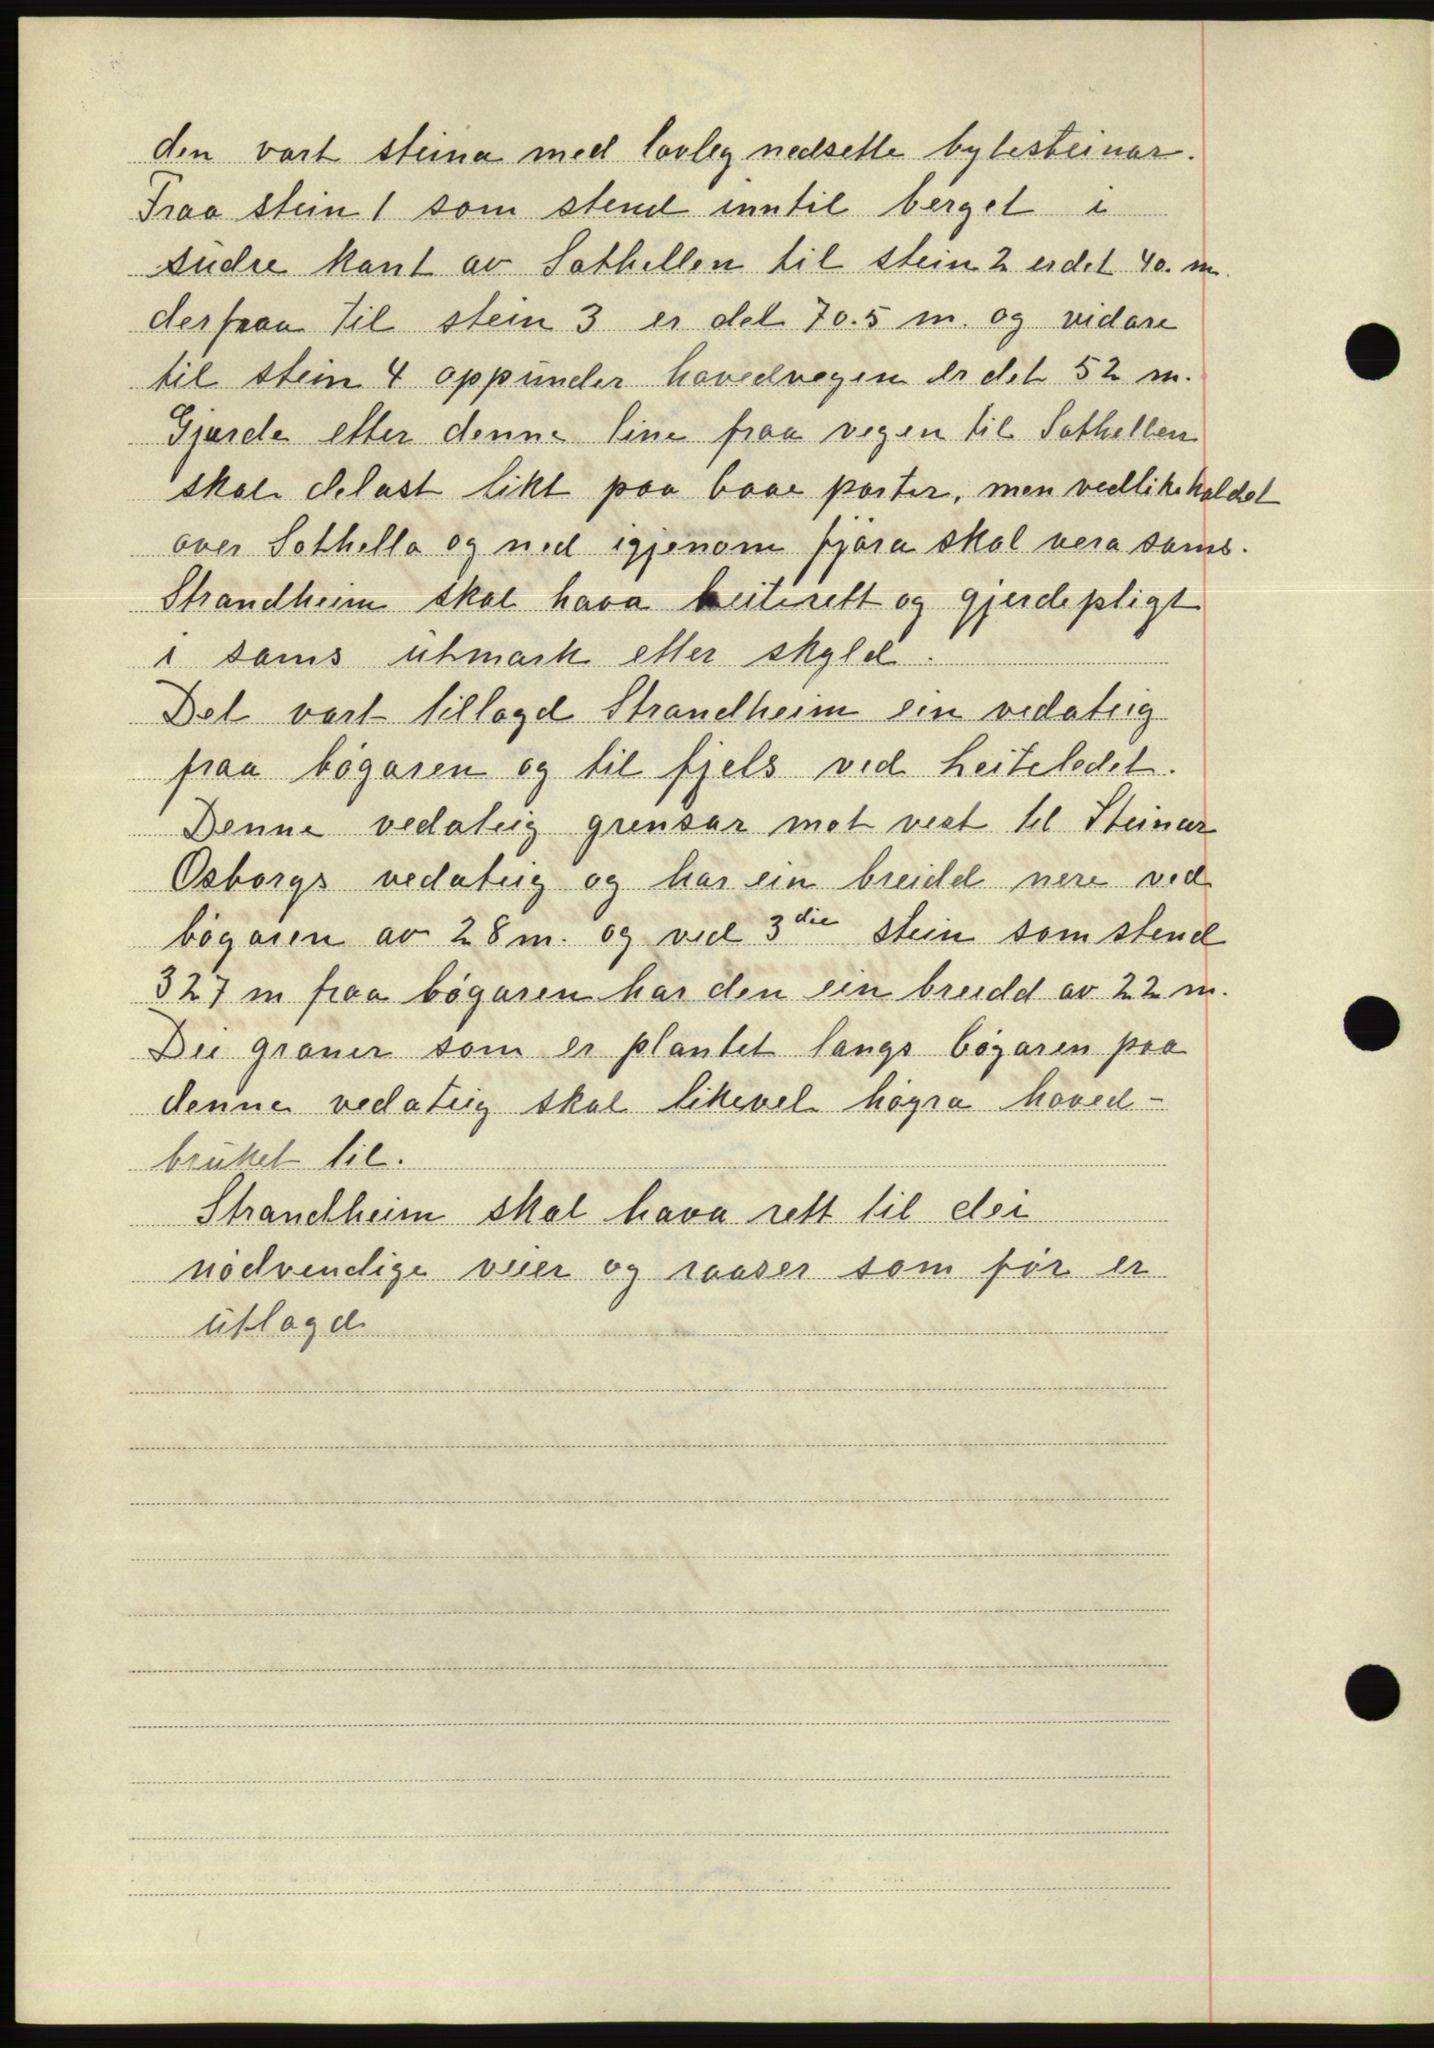 den vart steina med lovleg nedsette bytesteinar.
Fraa stein 1 som stend inntil berget i
südre kant av Sathellen til stein 2 er det 40. m.
derfraa til stein 3 er det 70.5 m. og vidare
til stein 4 oppunder hovedvegen er det 52 m.
Gjærde etter denne line fraa vegen til Sathellen
skal delast likt paa baae parter, men vedlikehaldet
over Sathella og ned igjenom fjøra skal vera sams.
Strandheim skal hava beiterett og gjerdepligt
i sams utmark etter skyld.
Det vart tillagd Strandheim ein vedateig
fraa bøgaren og til fjels ved heiteledet.
Denne vedateig grensar mot vest til Steinar
Osborgs vedateig og har ein breidd nere ved
bøgaren av 28 m. og ved 3die stein som stend
327 m fraa bøgaren har den ein breidd av 22 m.
Dei graner som er plantet langs bøgaren paa
denne vedateig skal likevel høyra hoved-
bruket til.
Strandheim skal hava rett til dei
nødvendige veier og raaser som før er
utlagd